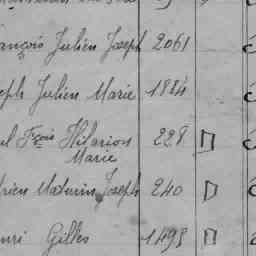 ançois Julien Joseph 2061
eph Julien Marie 1884
ul Fçois Hilarion 228 D
Marie
rien Mathurin Joseph 240 D
nri Gilles 1493 D